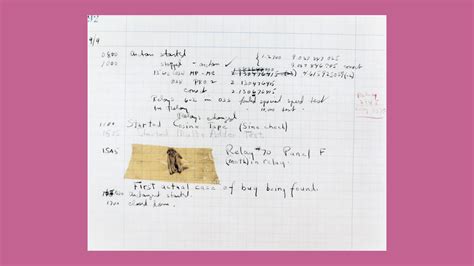 9/2
9/9
0800 Antan started
1000 stopped - antan ✓ { 1.2700 9.037 847 025
9.037 846 995 correct
13'00 (032) MP-MC 2.130476415 (-3) 4.615925059(-2)
(033) PRO.2 2.130476415
correct 2.130676415
Relays 6-2 in 033 failed special speed test
in relay " test.
Relays changed
1100 Started Cosine Tape (Sine check)
1525 Started Multi Adder Test.
1545 Relay #70 Panel F
(moth) in relay.
First actual case of bug being found.
antangent started.
1700 closed down.